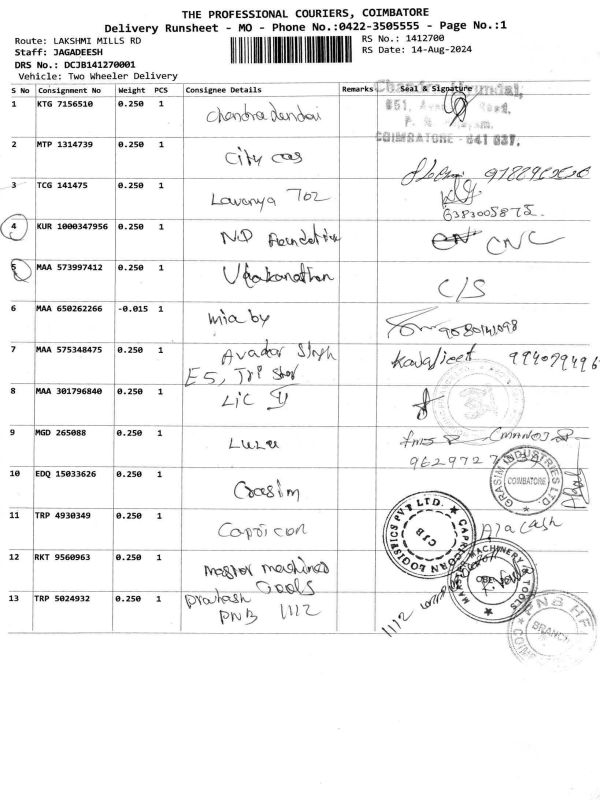 THE PROFESSIONAL COURIERS, COIMBATORE
Delivery Runsheet - MO - Phone No.:0422-3505555 - Page No.:1
Route: LAKSHMI MILLS RD
RS No.: 1412700
Staff: JAGADEESH
RS Date: 14-Aug-2024
DRS No.: DCJB141270001
Vehicle: Two Wheeler Delivery
S No Consignment No Weight PCS Consignee Details Remarks Seal & Signature
1 KTG 7156510 0.250 1
COIMBATORE - 641 037.
2 MTP 1314739 0.250 1 City
3 TCG 141475 0.250 1 Lavanya 702
6383005875
4 KUR 1000347956 0.250 1 ND Foundation CNC
5 MAA 573997412 0.250 1 C/S
6 MAA 650262266 -0.015 1 mia by
7 MAA 575348475 0.250 1 Avadar Singh
E5,
8 MAA 301796840 0.250 1 LIC
9 MGD 265088 0.250 1 LuLu
10 EDQ 15033626 0.250 1 Grasim GRASIM INDUSTRIES LTD COIMBATORE
11 TRP 4930349 0.250 1 Capricon CAPRICORN LOGISTICS PVT LTD. CJB
12 RKT 9560963 0.250 1 machines
Tools MACHINERY & TOOLS
13 TRP 5024932 0.250 1 prakash
PNB 1112 1112 PNB HF BRANCH